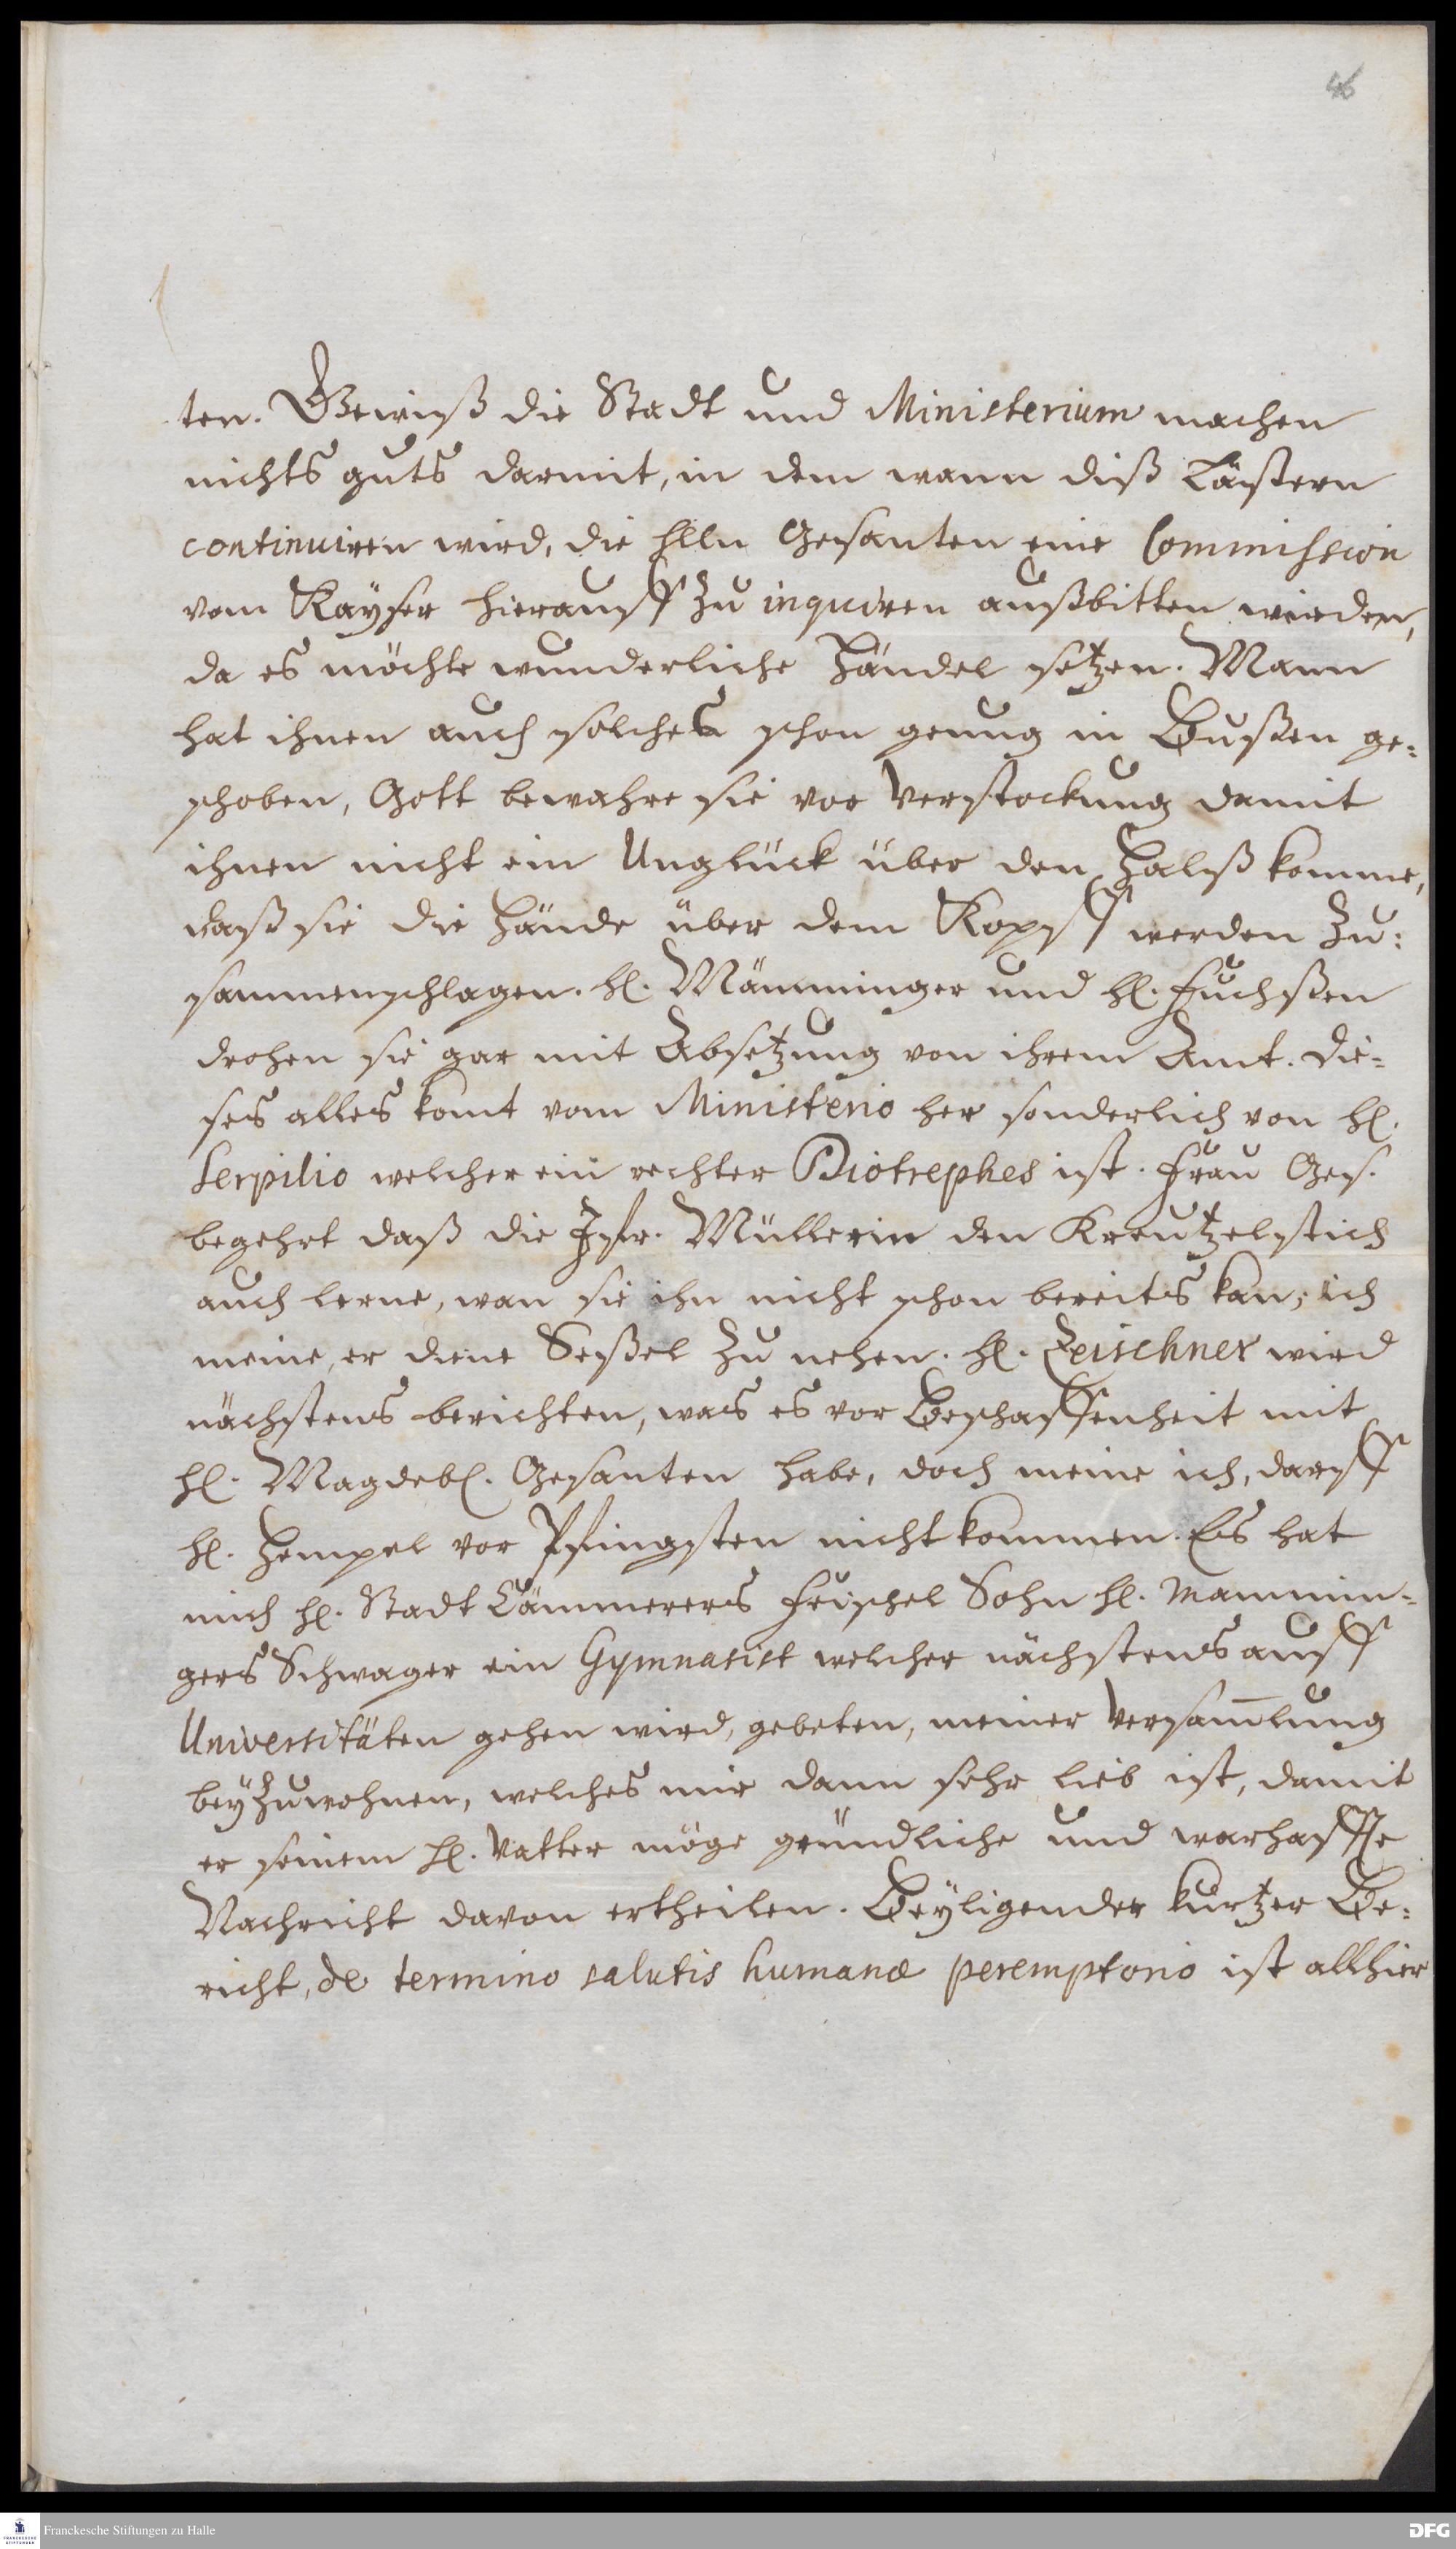 46
ten. Gewiß die Stadt und Ministerium machen
nichts guts darmit, in dem wann diß Lästern
continuiren wird, die Hlln Gesanten eine Commission
vom Kaÿser hierauff zu inquiren außbitten werden,
da es möchte wunderliche Händel setzen. Mann
hat ihnen auch solches schon genug in Bußen ge-
schoben, Gott bewahre sie vor Verstockung damit
ihnen nicht ein Unglück über den Halß komme,
daß sie die Hände über dem Kopff werden zu-
sammenschlagen. Hl. Mämminger und Hl. Fuchßen
drohen sie gar mit Absetzung von ihrem Amt. Die-
ses alles komt vom Ministerio her sonderlich von Hl.
Serpilio welcher ein rechter Diotrephes ist. Frau Ges.
begehrt daß die Jfr. Müllerin den Kreutzelstich
auch lerne, wan sie ihn nicht schon bereits kan; ich
meine, er diene Seßel zu nehen. Hl. Zeischner wird
nächstens berichten, was es vor Beschaffenheit mit
Hl. Magdebl. Gesanten habe, doch meine ich, darff
Hl. Hempel vor Pfingsten nicht kommen. Es hat
mich Hl. Stadt Cämmerers Frischel Sohn Hl. Mammin-
gers Schwager ein Gymnasist welcher nächstens auff
Universitäten gehen wird, gebeten, meiner Versam̄lung
beÿzuwohnen, welches mir dann sehr lieb ist, damit
er seinem Hl. Vatter möge gründliche und warhaffte
Nachricht davon ertheilen. Beÿligender kurtzer Be-
richt, de termino salutis humanæ peremptorio ist allhier
Franckesche Stiftungen zu Halle
DFG